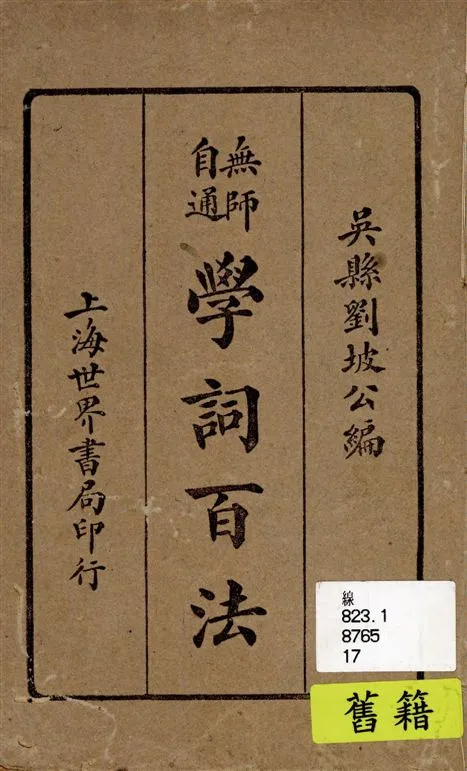 吳縣劉坡公編
無師
自通
學詞百法
上海世界書局印行
線
823.1
8765
17
舊籍